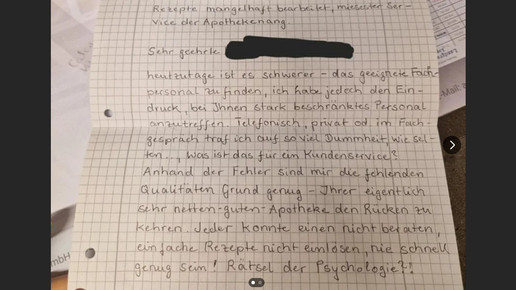 Rezepte mangelhaft bearbeitet, miesester Ser-
vice der Apothekenang.
Sehr geehrte
heutzutage ist es schwerer - das geeignete Fach-
personal zu finden, ich habe jedoch den Ein-
druck, bei Ihnen stark beschränktes Personal
anzutreffen. Telefonisch, privat od. im Fach-
gespräch traf ich auf so viel Dummheit, wie sel-
ten..., Was ist das für ein Kundenservice?
Anhand der Fehler sind mir die fehlenden
Qualitäten Grund genug - Ihrer eigentlich
sehr netten-guten-Apotheke den Rücken zu
kehren. Jeder konnte einen nicht beraten,
einfache Rezepte nicht einlösen, nie schnell
genug sein! Rätsel der Psychologie?!